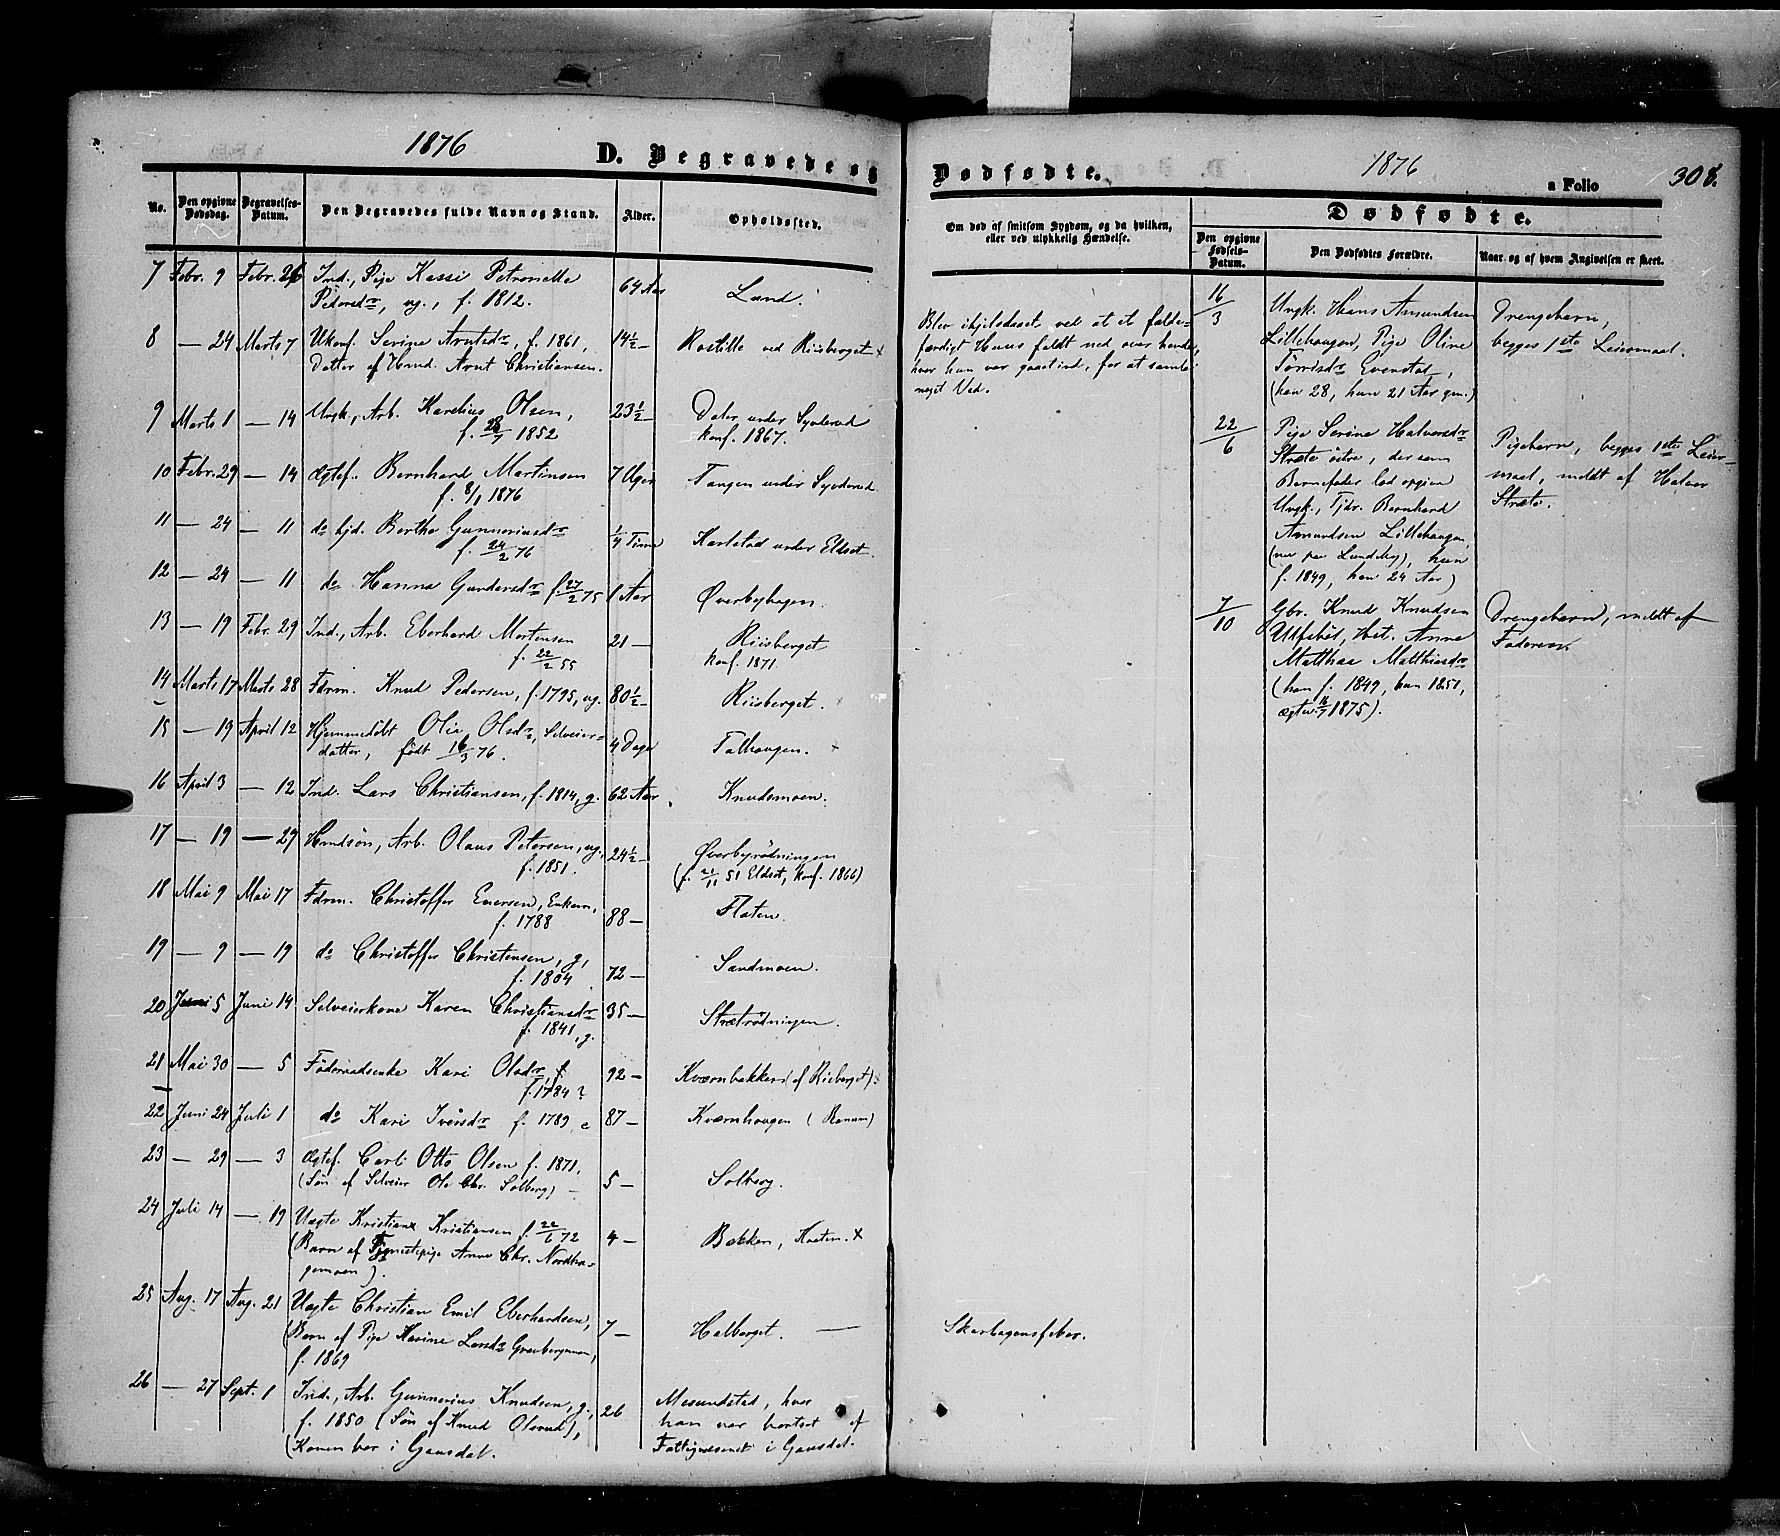 1876
D. Begravede og
No.
Den opgivne Dødsdag.
Begravelses-Datum.
Den Begravedes fulde Navn og Stand.
Alder.
Opholdssted.
7 Febr. 9 Febr. 26 Ind., Pige Petronelle 64 Aar Lund.
Pedersdr, ug., f. 1812.
8 — 24 Marts 7 Ukonf. Serine Arntsdr, f. 1861, 14½ — ved Riisberget
Datter af Hmd. Arnt Christiansen.
9 Marts 1 — 14 Ungk., Arb. Karelius Olsen, 23½ — under
f. 7 1852 konf. 1867.
10 Febr. 29 — 14 Ægtef. Bernhard Martinsen 7 Uger Tangen under
f. 8/1 1876
11 — 24 — 11 do hjd. Berthe Gunneriusdr ¼ Time Karlstad under Eldset
f. 24/2 76
12 — 24 — 11 do Hanna Gundersdr f. 27/2 75 1 Aar Øverbyhagen.
13 — 19 Febr. 29 Ind., Arb. Eberhard Mortensen 21 — Riisberget
f. 22/2 55 konf. 1871
14 Marts 17 Marts 28 Fdrm. Knud Pedersen, f. 1795, ug. 80½ — Riisberget.
15 — 19 April 12 Hjemmedøbt Olie Olsdr, Selveier-
datter, født 16/3 76. 4 Dage
16 April 3 — 12 Ind. Lars Christiansen, f. 1814, g. 62 Aar Knudsmoen.
17 — 19 — 29 Hmdsøn, Arb. Olaus Petersen, ug. 24½ — Øverbyrødningen
f. 1851. (f. 11 51 Eldset, konf. 1866)
18 Mai 9 Mai 17 Fdrm. Christoffer Enersen, Enkem. 88 — Flaten.
f. 1788
19 — 9 — 19 do Christoffer Christensen, g. 72 — Sandmoen.
f. 1804
20 5 Juni 14 Selveierkone Karen Christiansdr 35 — Strætrødningen.
f. 1841, g.
21 Mai 30 — 5 Føderaadsenke Kari Olsdr 92 — Kværnbakken (af Riisberget)
f. 1784?
22 Juni 24 Juli 1 do Kari Iversdr f. 1789 e 87 — Kværnhaugen (Ranum)
23 — 29 — 3 Ægtef. Carl Otto Olsen f. 1871, 5 — Solberg.
(Søn af Selveier Ole Chr. Solberg) —
24 Juli 14 — 19 Uægte Kristian Kristiansen f. 22/6 72 4 — Bakken,
(Barn af Tjenestepige Anne Chr. Nordha-
gemoen).
25 Aug. 17 Aug. 21 Uægte Christian Emil Eberhardsen, 7 — Halberget. —
(Barn af Pige Karine Larsdr Gravbergmoen,
f. 1869
26 — 27 Sept. 1 Ind., Arb. Gunnerius Knudsen, g., 26 Mesundstad, hvor
f. 1850 (Søn af Knud Olsrud), han var bortsat af
(Konen bor i Gausdal. Fattigvæsenet i Gausdal.
Dødfødte.
1876
a Folio
308.
Om død af smitsom Sygdom, og da hvilken,
eller ved ulykkelig Hændelse.
Dødfødte.
Den opgivne Fødsels-Datum.
Den Dødfødtes Forældre.
Naar og af hvem Angivelsen er skeet.
Blev ihjelslaaet ved at et falde-
færdigt Huus faldt ned over hende,
hvor hun var gaaet ind, for at samle
noget Ved.
Skarlagensfeber.
16/3 Ungk. Hans Amundsen Drengebarn,
Lillehaugen, Pige Oline begges 1ste Leiermaal.
Tørrisdr Evenstad,
(han 28, hun 21 Aar gm.)
22/6 Pige Serine Halvorsdr Pigebarn, begges 1ste Leier-
Stræte østre, der som maal, meldt af Halvor
Barnefader lod opgive Stræte.
Ungk., Tjdr. Bernhard
Amundsen Lillehaugen,
(nu paa Lundeby), han
f. 1849, hun 24 Aar)
7/10 Gbr. Knud Knudsen Drengebarn, meldt af
Hst. Anne Faderen.
Matthea Matthiasdr
(han f. 1849, hun 1851,
ægtev. 1875).